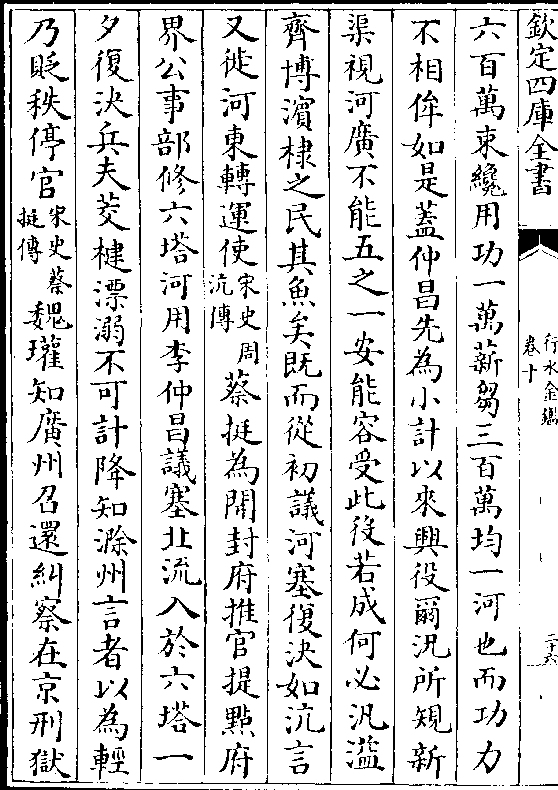 欽定四庫全書
行水金鑑
卷十
二十六
六百萬束纔用功一萬薪芻三百萬均一河也而功力
不相侔如是蓋仲昌先為小計以來興役爾汎所䂓新
渠視河廣不能五之一安能容受此役若成何必汎滥
齊博濵棣之民其魚矣既而從初議河塞復決如沆言
又徙河東轉運使宋史周沆傳 蔡挺為開封府推官提點府
界公事部修六塔河用李仲昌議塞北流入於六塔一
夕復決兵夫芟楗漂溺不可計降知滁州言者以為輕
乃貶秩停官宋史蔡挺傳 魏瓘知廣州召還糾察在京刑獄